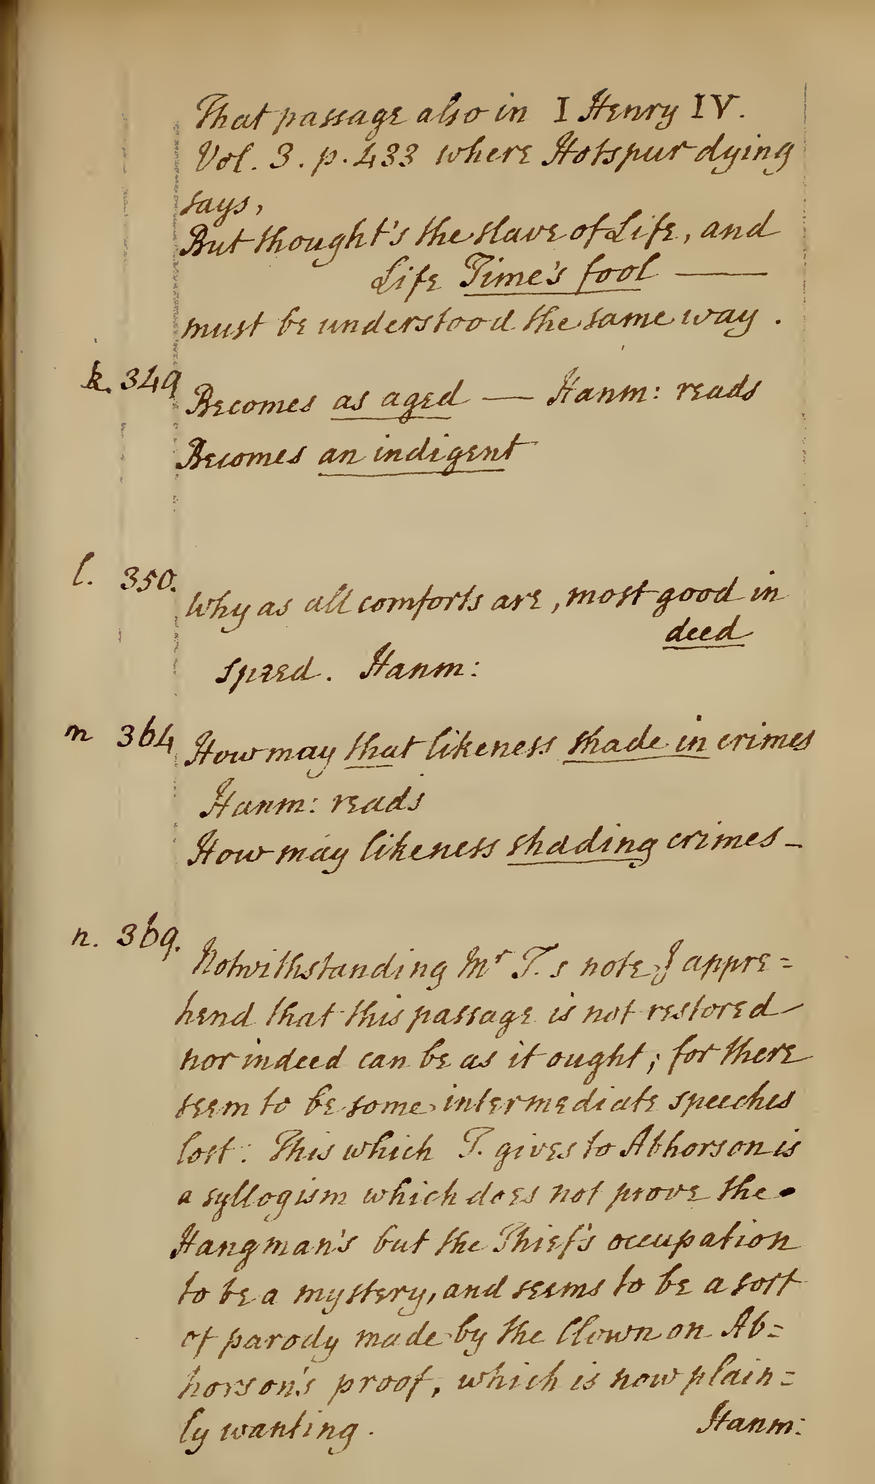 That passage also in I Henry IV.
Vol. 3. p. 433 where Hotspur dying
says,
But thought's the slave of Life, and
Life Time's fool ——
must be understood the same way .
k. 349 Becomes as aged — Hanm: reads
Becomes an indigent
l. 350. Why as all comforts are, most good in
deed
speed. Hanm:
m 364 How may that likeness shade in crimes
Hanm: reads
How may likeness shading crimes –
n. 369. Notwithstanding Mr T.s note I appre=
hend that this passage is not restored
nor indeed can be as it ought; for there
seem to be some intermediate speeches
lost. This which T. gives to Abhorson is
a syllogism which does not prove the
Hangman's but the Thief's occupation
to be a mystery, and seems to be a sort
of parody made by the Clown on Ab=
horson's proof, which is now plain=
ly wanting. Hanm: